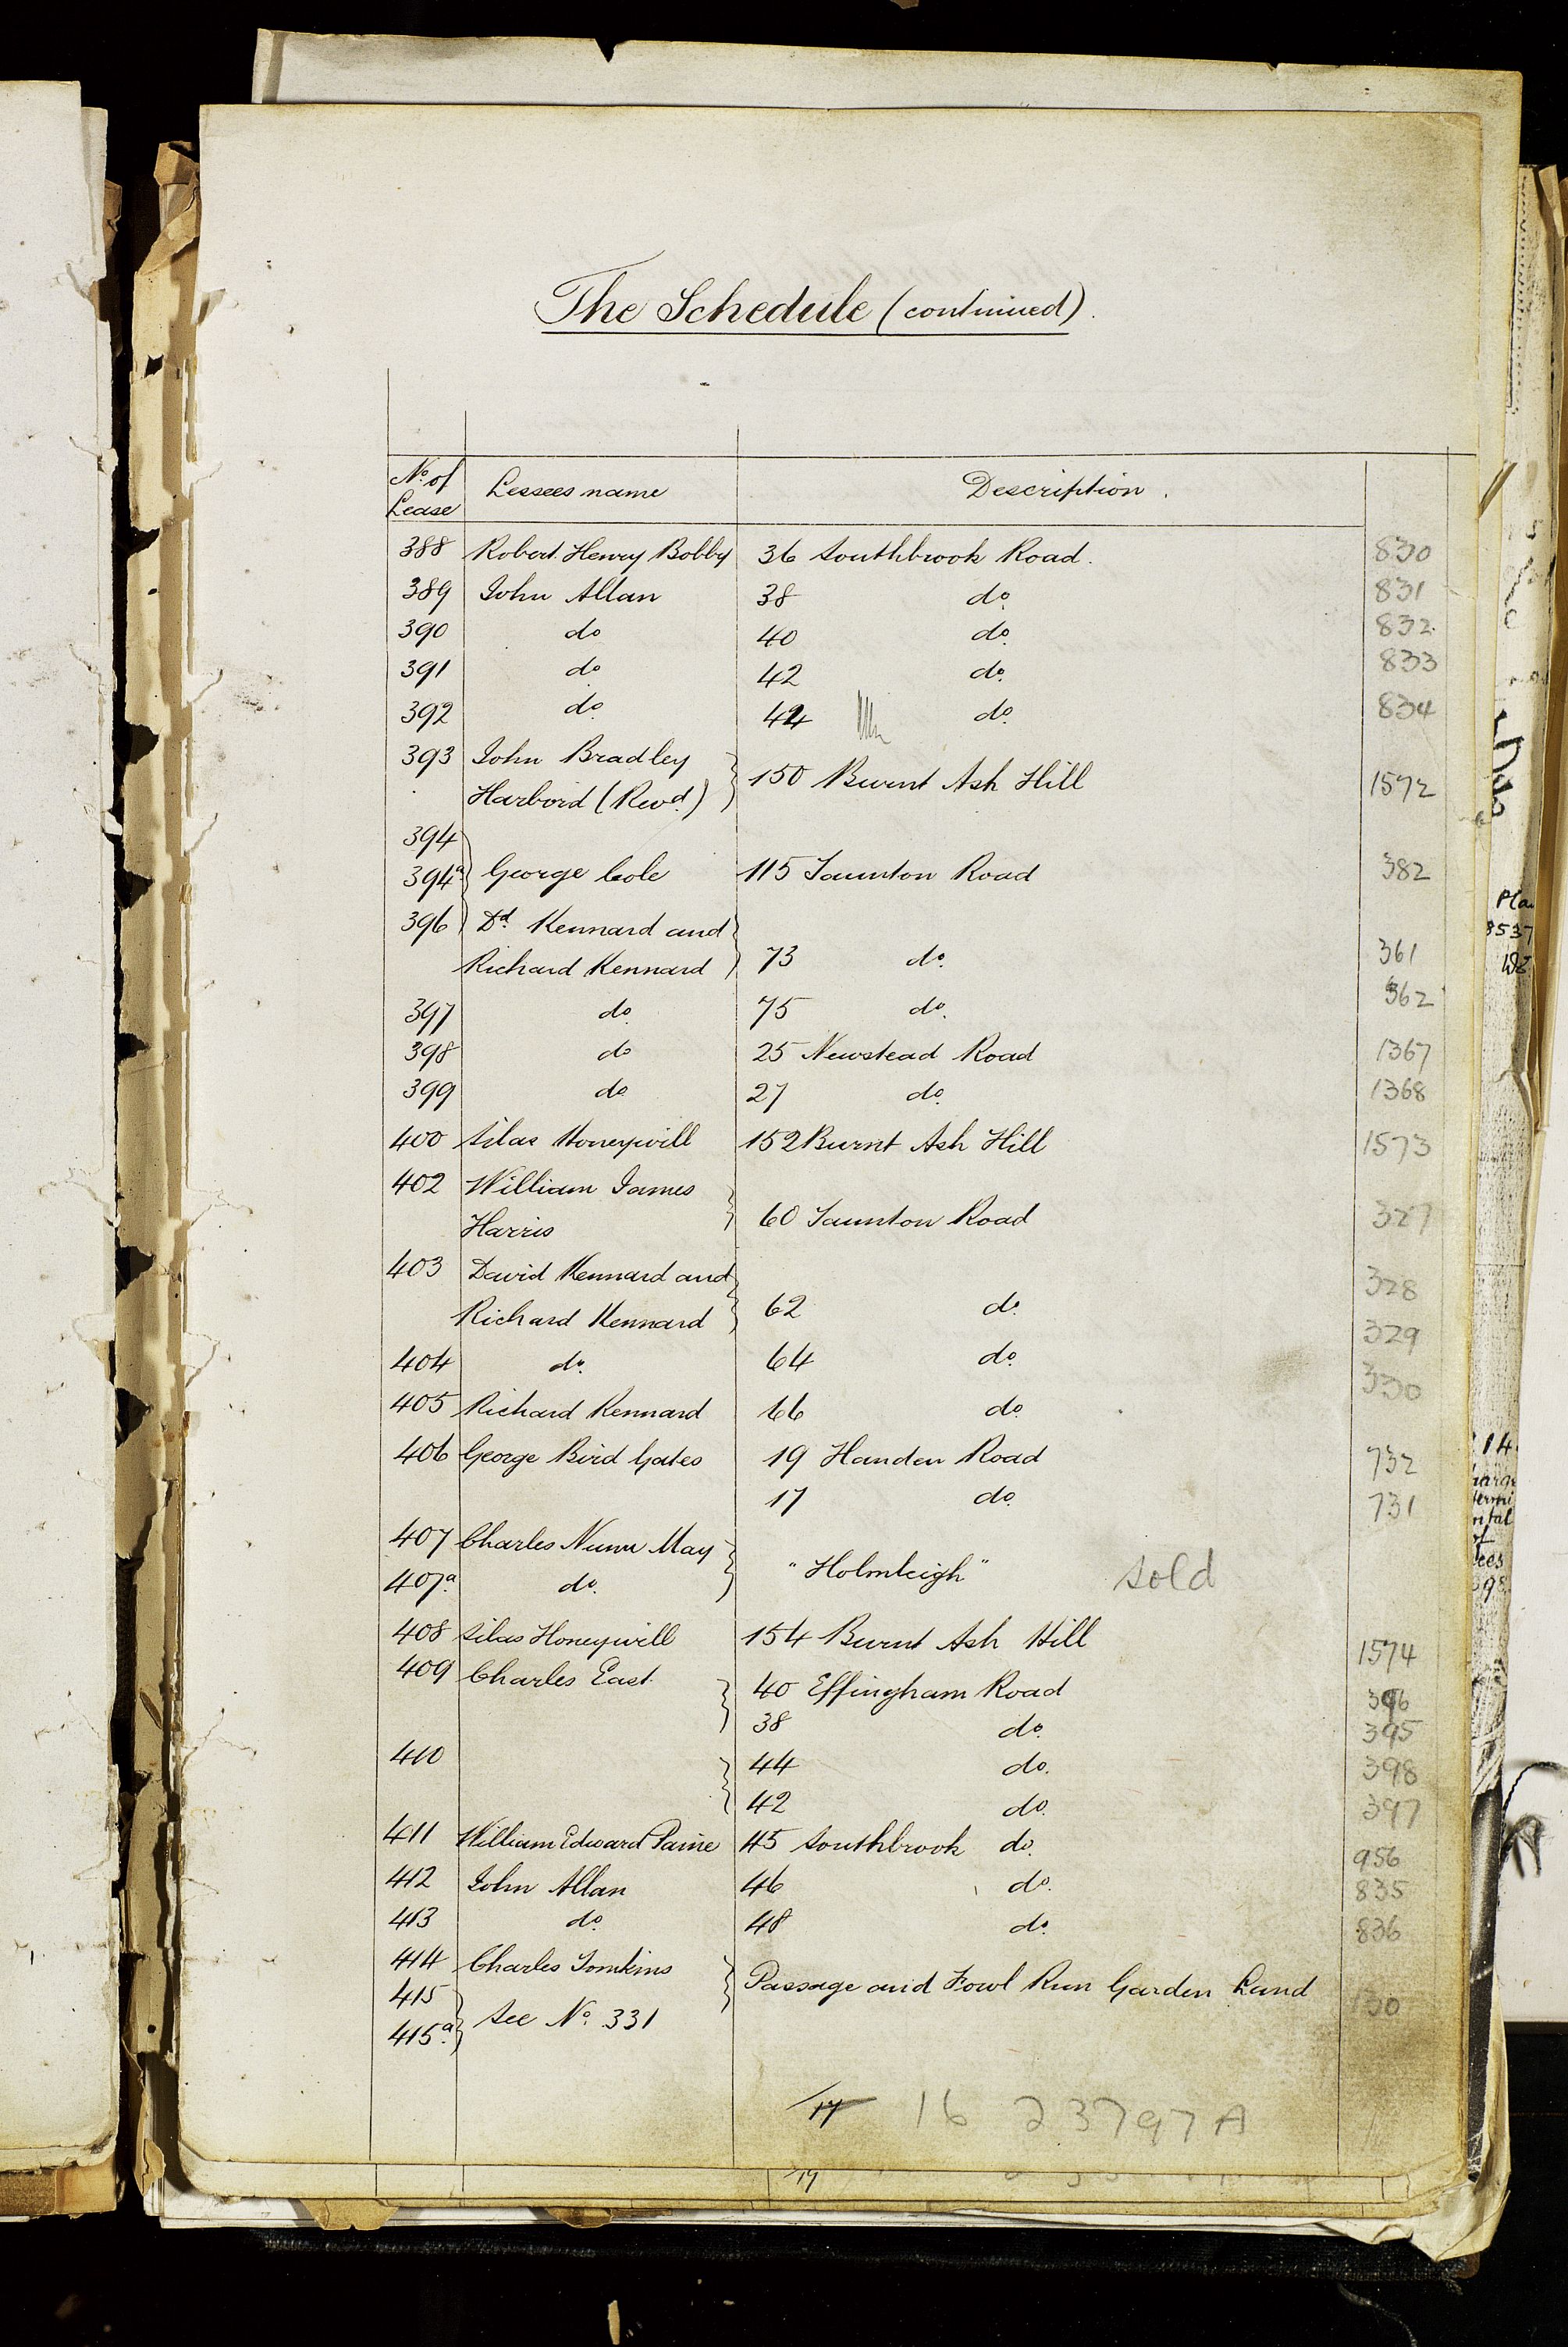 The Schedule (continued).
No. of Lease Lessees name Description.
388 Robert Henry Bobby 36 Southbrook Road. 830
389 John Allan 38 do. 831
390 do 40 do. 832
391 do 42 do. 833
392 do. 44 do. 834
393 John Bradley
Harbord (Revd.) 150 Burnt Ash Hill 1572
394
394a George Cole 115 Taunton Road 382
396 Dd. Kennard and
Richard Kennard 73 do. 361
397 do 75 do. 362
398 do 25 Newstead Road 1367
399 do 27 do. 1368
400 Silas Honeywill 152 Burnt Ash Hill 1573
402 William James
Harris 60 Taunton Road 327
403 David Kennard and 328
Richard Kennard 62 do. 329
404 do. 64 do. 330
405 Richard Kennard 66 do
406 George Bird Gates 19 Handen Road 732
17 do. 731
407 Charles Nunn May
"Holmleigh" sold
407a. do.
408 Silas Honeywill 154 Burnt Ash Hill 1574
409 Charles East 40 Effingham Road 396
38 do. 395
410 44 do. 398
42 do. 397
411 William Edward Paine 45 Southbrook do. 956
412 John Allan 46 do. 835
413 do. 48 do. 836
414 Charles Tomkins Passage and Fowl Run Garden Land
415
See No. 331
415a.
17 16 23797A
19
Pla
8537